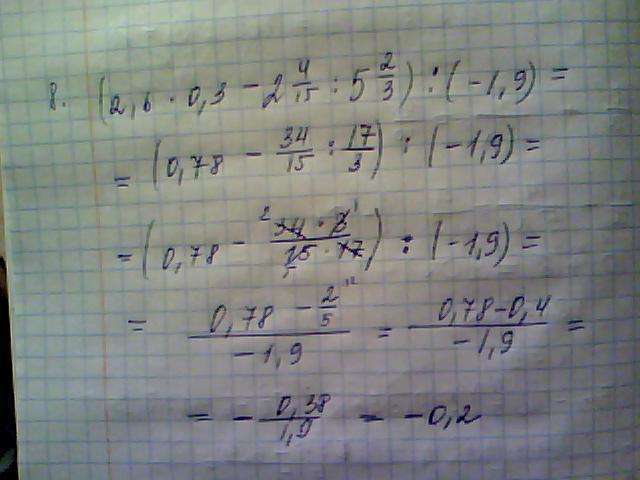 8. (2,6 · 0,3 − 2 4/15 : 5 2/3) : (−1,9) =
= (0,78 − 34/15 : 17/3) : (−1,9) =
= (0,78 − 34 · 3 / 15 · 17) : (−1,9) =
= 0,78 − 2/5 / −1,9 = 0,78−0,4 / −1,9 =
= − 0,38/1,9 = −0,2